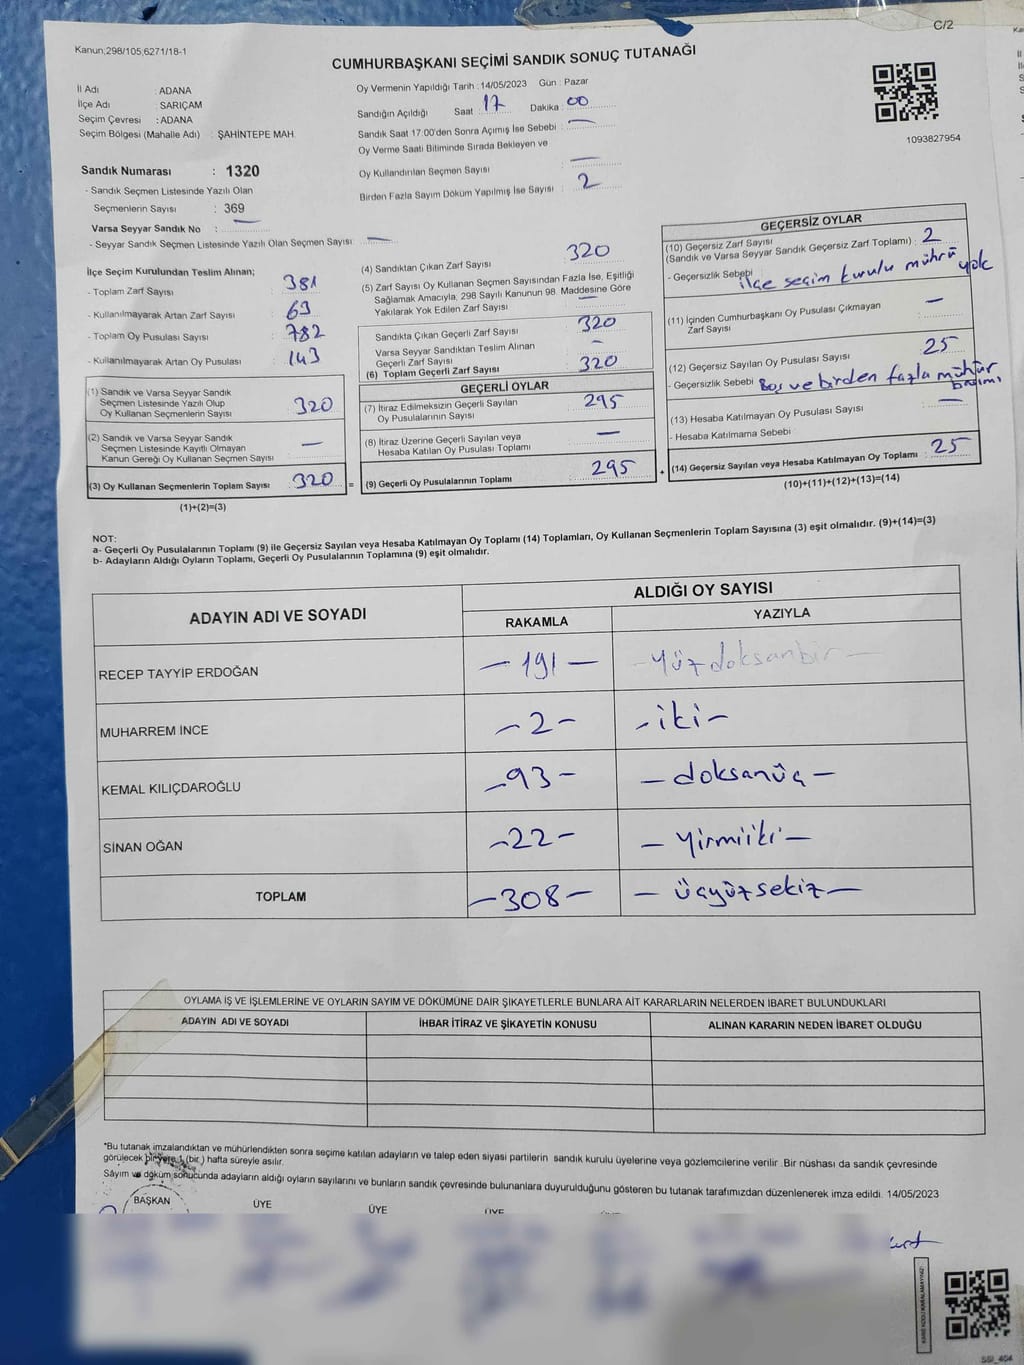 C/2
Kanun;298/105;6271/18-1
CUMHURBAŞKANI SEÇİMİ SANDIK SONUÇ TUTANAĞI
İl Adı : ADANA
İlçe Adı : SARIÇAM
Seçim Çevresi : ADANA
Seçim Bölgesi (Mahalle Adı) : ŞAHİNTEPE MAH.
Sandık Numarası : 1320
- Sandık Seçmen Listesinde Yazılı Olan
Seçmenlerin Sayısı : 369
Varsa Seyyar Sandık No : —
- Seyyar Sandık Seçmen Listesinde Yazılı Olan Seçmen Sayısı : —
Oy Vermenin Yapıldığı Tarih : 14/05/2023 Gün : Pazar
Sandığın Açıldığı Saat 17 Dakika 00
Sandık Saat 17:00'den Sonra Açımış İse Sebebi : —
Oy Verme Saati Bitiminde Sırada Bekleyen ve
Oy Kullandırılan Seçmen Sayısı : —
Birden Fazla Sayım Döküm Yapılmış İse Sayısı : 2
1093827954
İlçe Seçim Kurulundan Teslim Alınan;
- Toplam Zarf Sayısı : 381
- Kullanılmayarak Artan Zarf Sayısı : 63
- Toplam Oy Pusulası Sayısı : 782
- Kullanılmayarak Artan Oy Pusulası : 143
(1) Sandık ve Varsa Seyyar Sandık
Seçmen Listesinde Yazılı Olup
Oy Kullanan Seçmenlerin Sayısı : 320
(2) Sandık ve Varsa Seyyar Sandık
Seçmen Listesinde Kayıtlı Olmayan
Kanun Gereği Oy Kullanan Seçmen Sayısı : —
(3) Oy Kullanan Seçmenlerin Toplam Sayısı : 320 =
(1)+(2)=(3)
(4) Sandıktan Çıkan Zarf Sayısı : 320
(5) Zarf Sayısı Oy Kullanan Seçmen Sayısından Fazla İse, Eşitliği
Sağlamak Amacıyla, 298 Sayılı Kanunun 98. Maddesine Göre
Yakılarak Yok Edilen Zarf Sayısı : —
Sandıkta Çıkan Geçerli Zarf Sayısı : 320
Varsa Seyyar Sandıktan Teslim Alınan
Geçerli Zarf Sayısı : —
(6) Toplam Geçerli Zarf Sayısı : 320
GEÇERLİ OYLAR
(7) İtiraz Edilmeksizin Geçerli Sayılan
Oy Pusulalarının Sayısı : 295
(8) İtiraz Üzerine Geçerli Sayılan veya
Hesaba Katılan Oy Pusulası Toplamı : —
(9) Geçerli Oy Pusulalarının Toplamı : 295 +
GEÇERSİZ OYLAR
(10) Geçersiz Zarf Sayısı
(Sandık ve Varsa Seyyar Sandık Geçersiz Zarf Toplamı) : 2
- Geçersizlik Sebebi : ilçe seçim kurulu mührü yok
(11) İçinden Cumhurbaşkanı Oy Pusulası Çıkmayan
Zarf Sayısı : —
(12) Geçersiz Sayılan Oy Pusulası Sayısı : 25
- Geçersizlik Sebebi : Boş ve birden fazla mühür basımı
(13) Hesaba Katılmayan Oy Pusulası Sayısı : —
- Hesaba Katılmama Sebebi :
(14) Geçersiz Sayılan veya Hesaba Katılmayan Oy Toplamı : 25
(10)+(11)+(12)+(13)=(14)
NOT:
a- Geçerli Oy Pusulalarının Toplamı (9) ile Geçersiz Sayılan veya Hesaba Katılmayan Oy Toplamı (14) Toplamları, Oy Kullanan Seçmenlerin Toplam Sayısına (3) eşit olmalıdır. (9)+(14)=(3)
b- Adayların Aldığı Oyların Toplamı, Geçerli Oy Pusulalarının Toplamına (9) eşit olmalıdır.
ADAYIN ADI VE SOYADI ALDIĞI OY SAYISI
RAKAMLA YAZIYLA
RECEP TAYYİP ERDOĞAN — 191 — — Yüzdoksanbir —
MUHARREM İNCE — 2 — — iki —
KEMAL KILIÇDAROĞLU — 93 — — doksanüç —
SİNAN OĞAN — 22 — — Yirmiiki —
TOPLAM — 308 — — üçyüzsekiz —
OYLAMA İŞ VE İŞLEMLERİNE VE OYLARIN SAYIM VE DÖKÜMÜNE DAİR ŞİKAYETLERLE BUNLARA AİT KARARLARIN NELERDEN İBARET BULUNDUKLARI
ADAYIN ADI VE SOYADI İHBAR İTİRAZ VE ŞİKAYETİN KONUSU ALINAN KARARIN NEDEN İBARET OLDUĞU
*Bu tutanak imzalandıktan ve mühürlendikten sonra seçime katılan adayların ve talep eden siyasi partilerin sandık kurulu üyelerine veya gözlemcilerine verilir. Bir nüshası da sandık çevresinde
görülecek bir yere 1 (bir ) hafta süreyle asılır.
Sayım ve döküm sonucunda adayların aldığı oyların sayılarını ve bunların sandık çevresinde bulunanlara duyurulduğunu gösteren bu tutanak tarafımızdan düzenlenerek imza edildi. 14/05/2023
BAŞKAN ÜYE ÜYE ÜYE